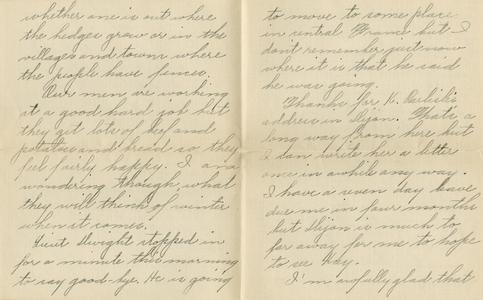 whether one is out where
the hedges grow or in the
villages and towns where
the people have fences.
Our men are working
at a good hard job but
they get lots of beef and
potatoes and bread so they
feel fairly happy. I am
wondering though what
they will think of winter
when it comes.
Lieut Dwight stopped in
for a minute this morning
to say good-bye. He is going
to move to some place
in central France but I
don't remember just now
where it is that he said
he was going.
Thanks for K.
address in Dijon. That's a
long way from here but
I can write her a letter
once in awhile any way.
I have a seven day leave
due me in four months
but Dijon is much to
far away for me to hope
to see Kay.
I'm awfully glad that